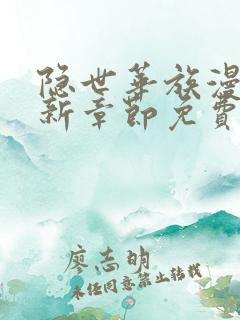 隐世华族漫
新章节免费
廖志明
未经同意禁止转载